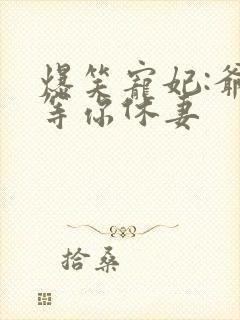 爆笑寵妃:爺
等你休妻
拾桑